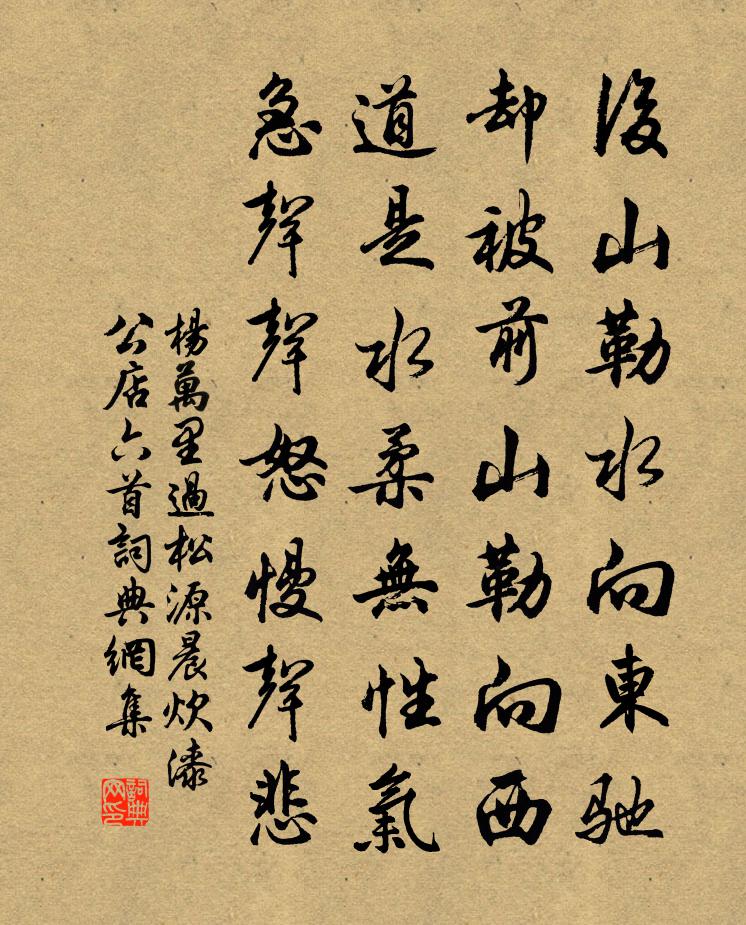 後山勒水向東馳
却被前山勒向西
道是水柔無性氣
急聲聲怒慢聲悲
楊萬里過松源晨炊漆
公店六首詞典網集
詞典网印